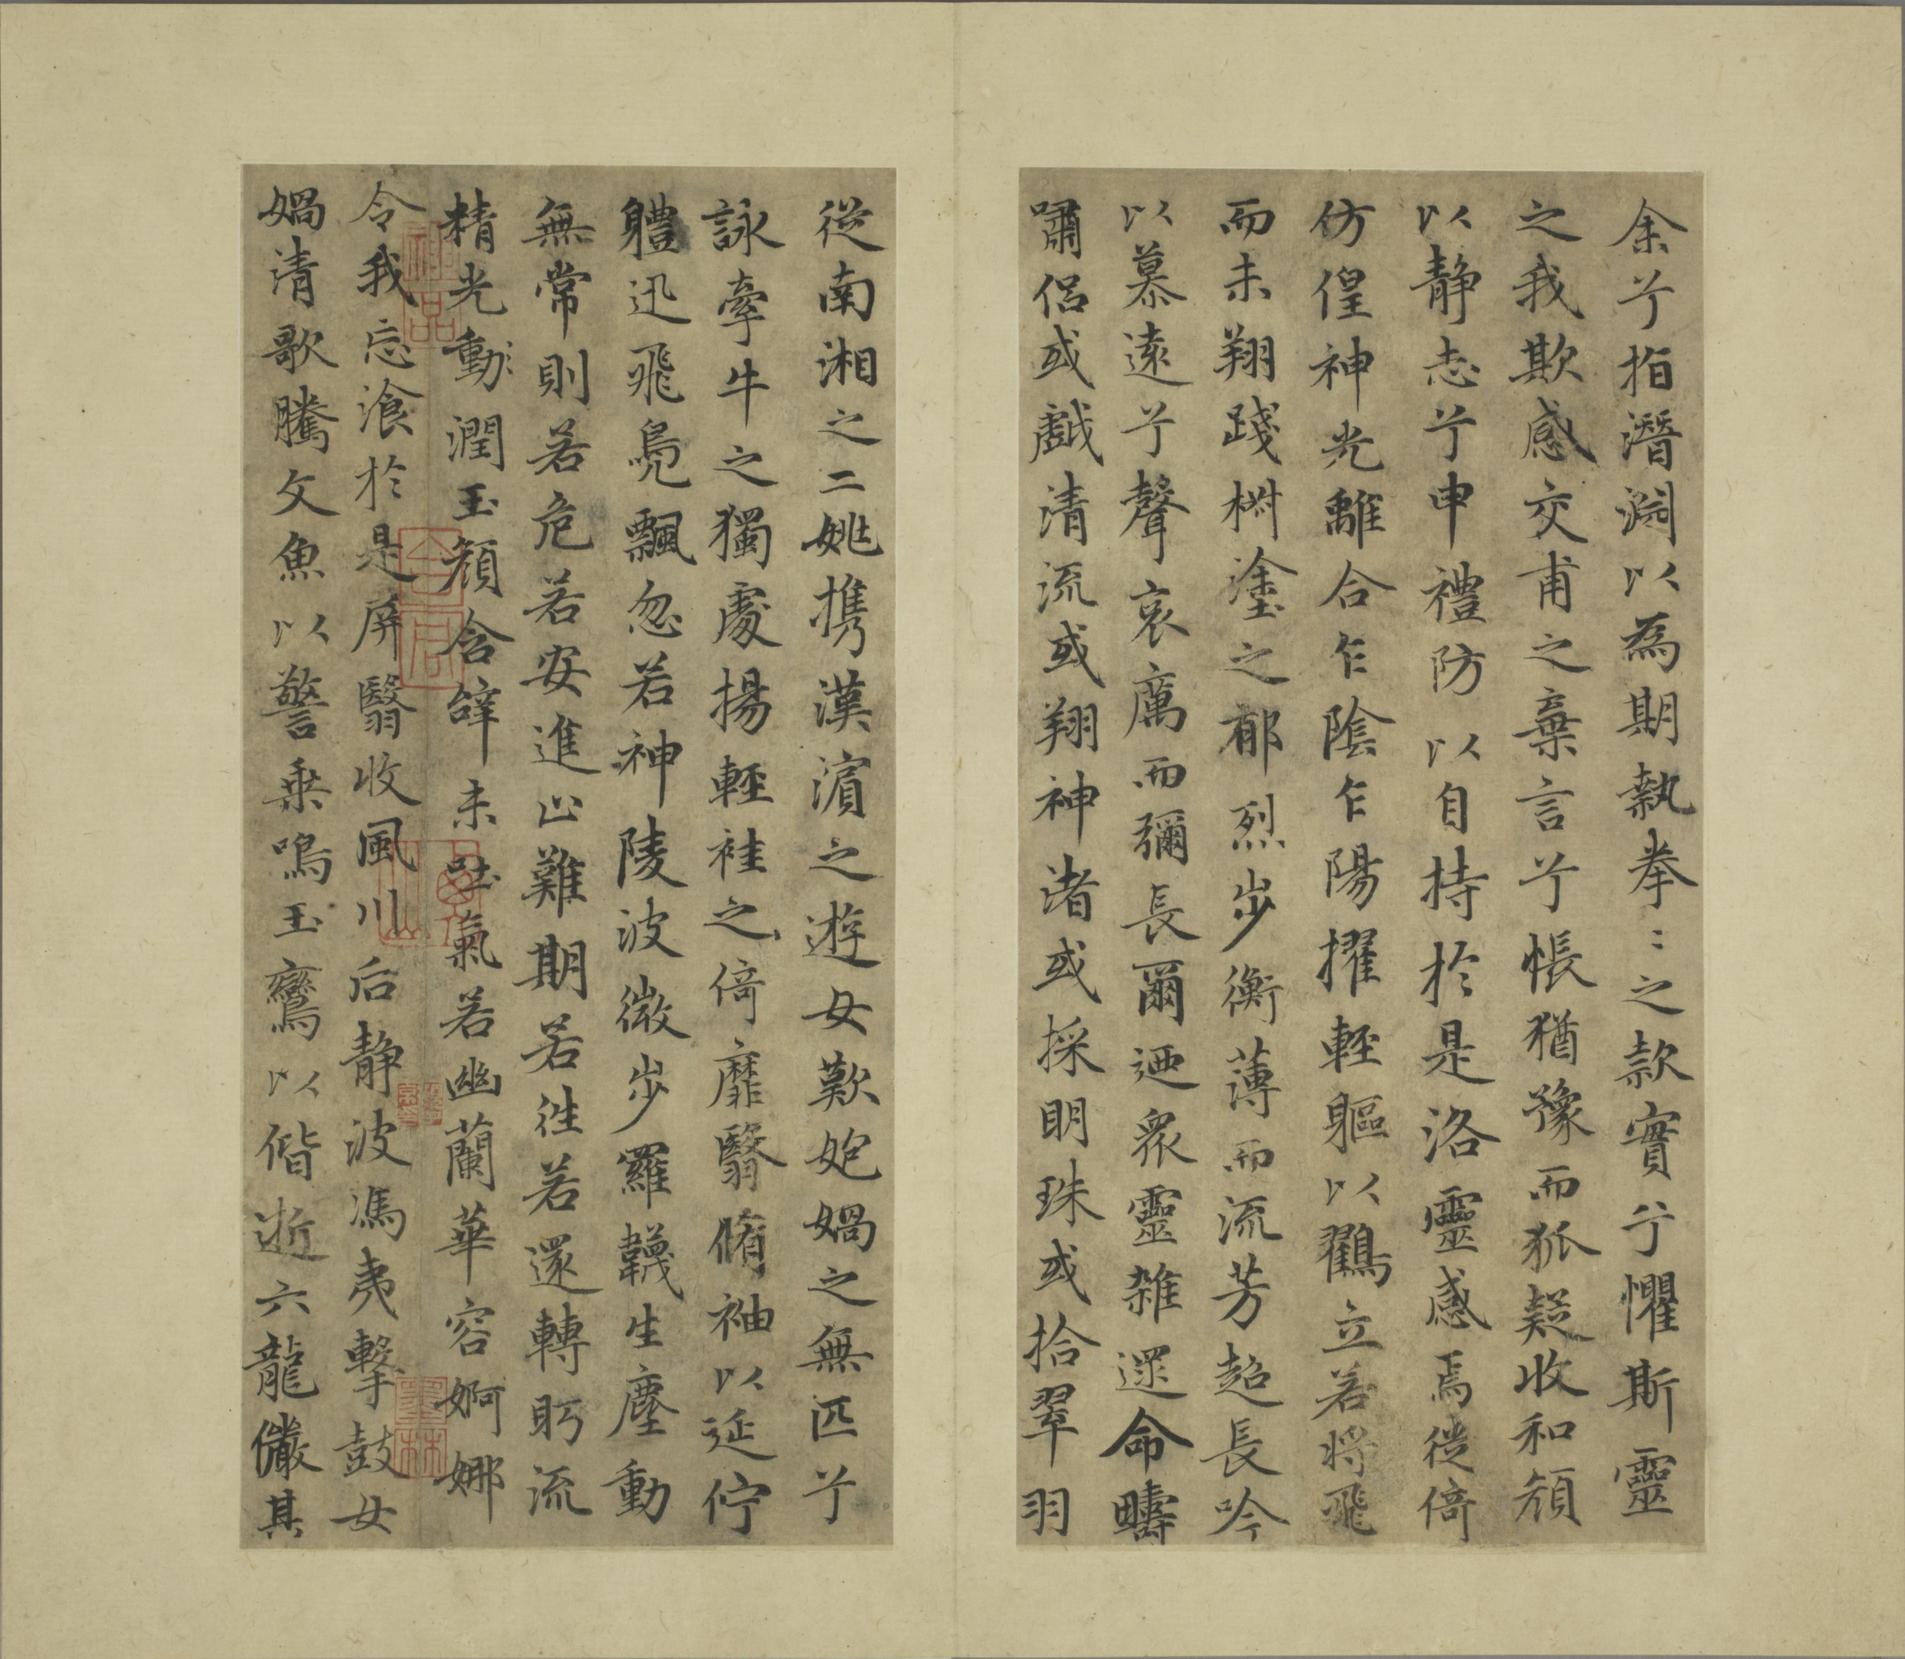 余兮指潛淵以為期執拳〻之款實兮懼斯靈
之我欺感交甫之棄言兮悵猶豫而狐疑收和顏
以静志兮申禮防以自持於是洛靈感焉徙倚
仿偟神光離合乍陰乍陽擢輕軀以鸛立若將飛
而未翔踐椒塗之郁烈步衡薄而流芳超長吟
以慕遠兮聲哀厲而彌長爾迺衆靈雜遝命疇
嘯侶或戲清流或翔神渚或採明珠或拾翠羽
從南湘之二姚携漢濵之遊女歎妑媧之無匹兮
詠牽牛之獨處揚輕袿之倚靡翳脩袖以延佇
軆迅飛鳬飄忽若神陵波微步羅韈生塵動
無常則若危若安進止難期若往若還轉眄流
精光動潤玉顔含辝未吐氣若幽蘭華容婀娜
令我忘飡於是屏翳收風川后静波馮夷擊鼓女
媧清歌騰文魚以警乗鳴玉鸞以偕逝六龍儼其